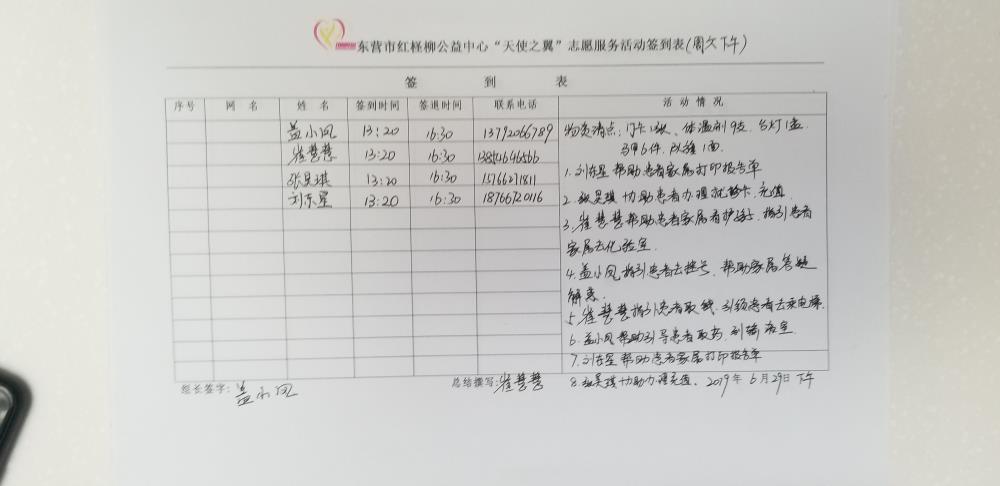 东营市红柽柳公益中心“天使之翼”志愿服务活动签到表(周六下午)
签 到 表
序号 网 名 姓 名 签到时间 签退时间 联系电话 活 动 情 况
盖小凤 13:20 16:30 13792066789
崔慧慧 13:20 16:30
张昊琪 13:20 16:30 15766271811
刘东星 13:20 16:30 18766720116
物资清点:门卡1张、体温剂9支、台灯1盏
马甲6件、队旗1面.
1.刘东星帮助患者家属打印报告单
2.张昊琪协助患者办理就诊卡、充值
3.崔慧慧帮助患者家属看护孩子、指引患者
家属去化验室.
4.盖小凤指引患者去挂号、帮助家属答疑
解惑.
5.崔慧慧指引患者取钱、引领患者去乘电梯.
6.盖小凤帮助引导患者取药、到输液室
7.刘东星帮助患者家属打印报告单
8.张昊琪协助办理充值、2019年6月29日下午
组长签字:盖小凤 总结撰写:崔慧慧